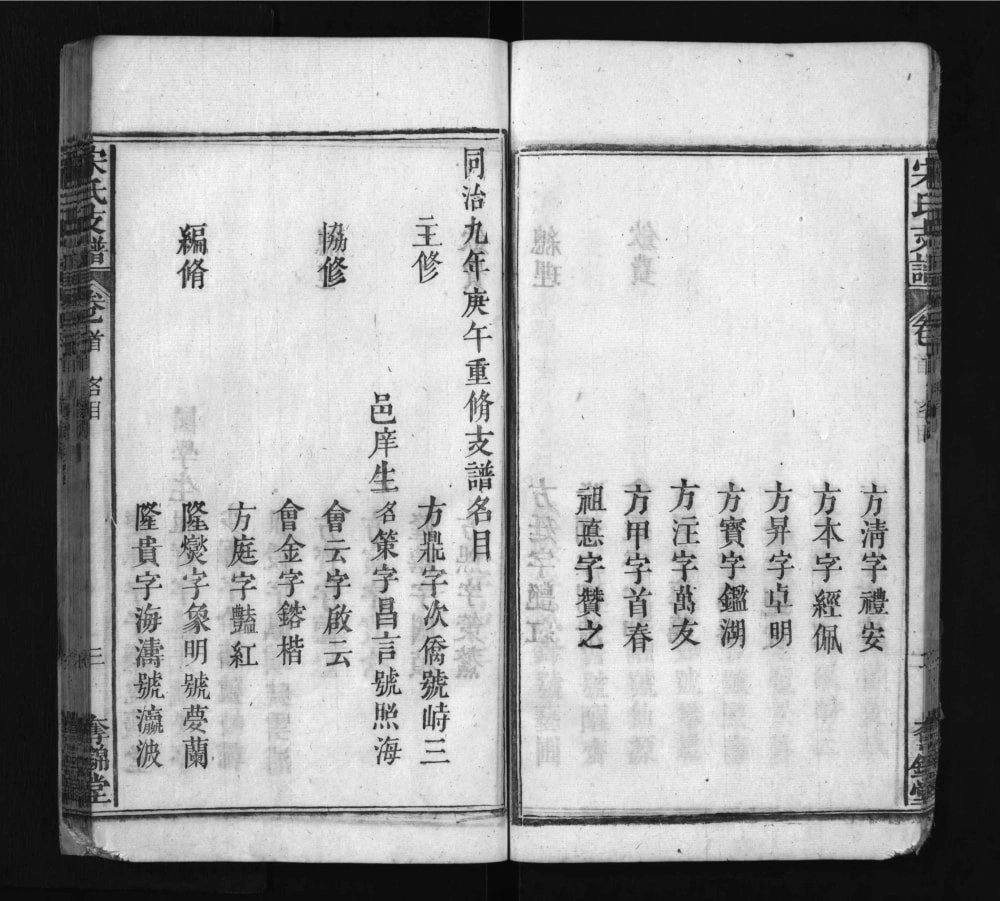 方淸字禮安
方本字經佩
方昇字卓明
方寶字鑑湖
方汪字萬友
方甲字首春
祖惪字賛之
宋氏支譜
卷首
同治九年庚午重脩支譜名目
主修
方鼎字次僑號峙三
邑庠生名策字昌言號照海
協修
會云字啟云
會金字鎔楷
方庭字豔紅
編脩
隆爕字象明號夢蘭
隆貴字海濤號瀛波
宋氏支譜
卷首
名目
三
奪錦堂